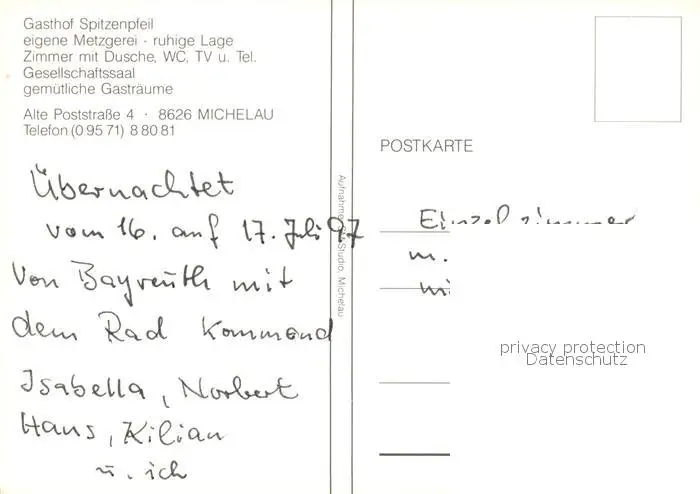 Gasthof Spitzenpfeil
eigene Metzgerei · ruhige Lage
Zimmer mit Dusche, WC, TV u. Tel.
Gesellschaftssaal
gemütliche Gasträume
Alte Poststraße 4 · 8626 MICHELAU
Telefon (0 95 71) 8 80 81
Übernachtet
vom 16. auf 17. Juli 97
von Bayreuth mit
dem Rad kommend
Isabella, Norbert
Hans, Kilian
u. ich
Aufnahme: Studio, Michelau
POSTKARTE
Einzelzimmer
m.
privacy protection
Datenschutz